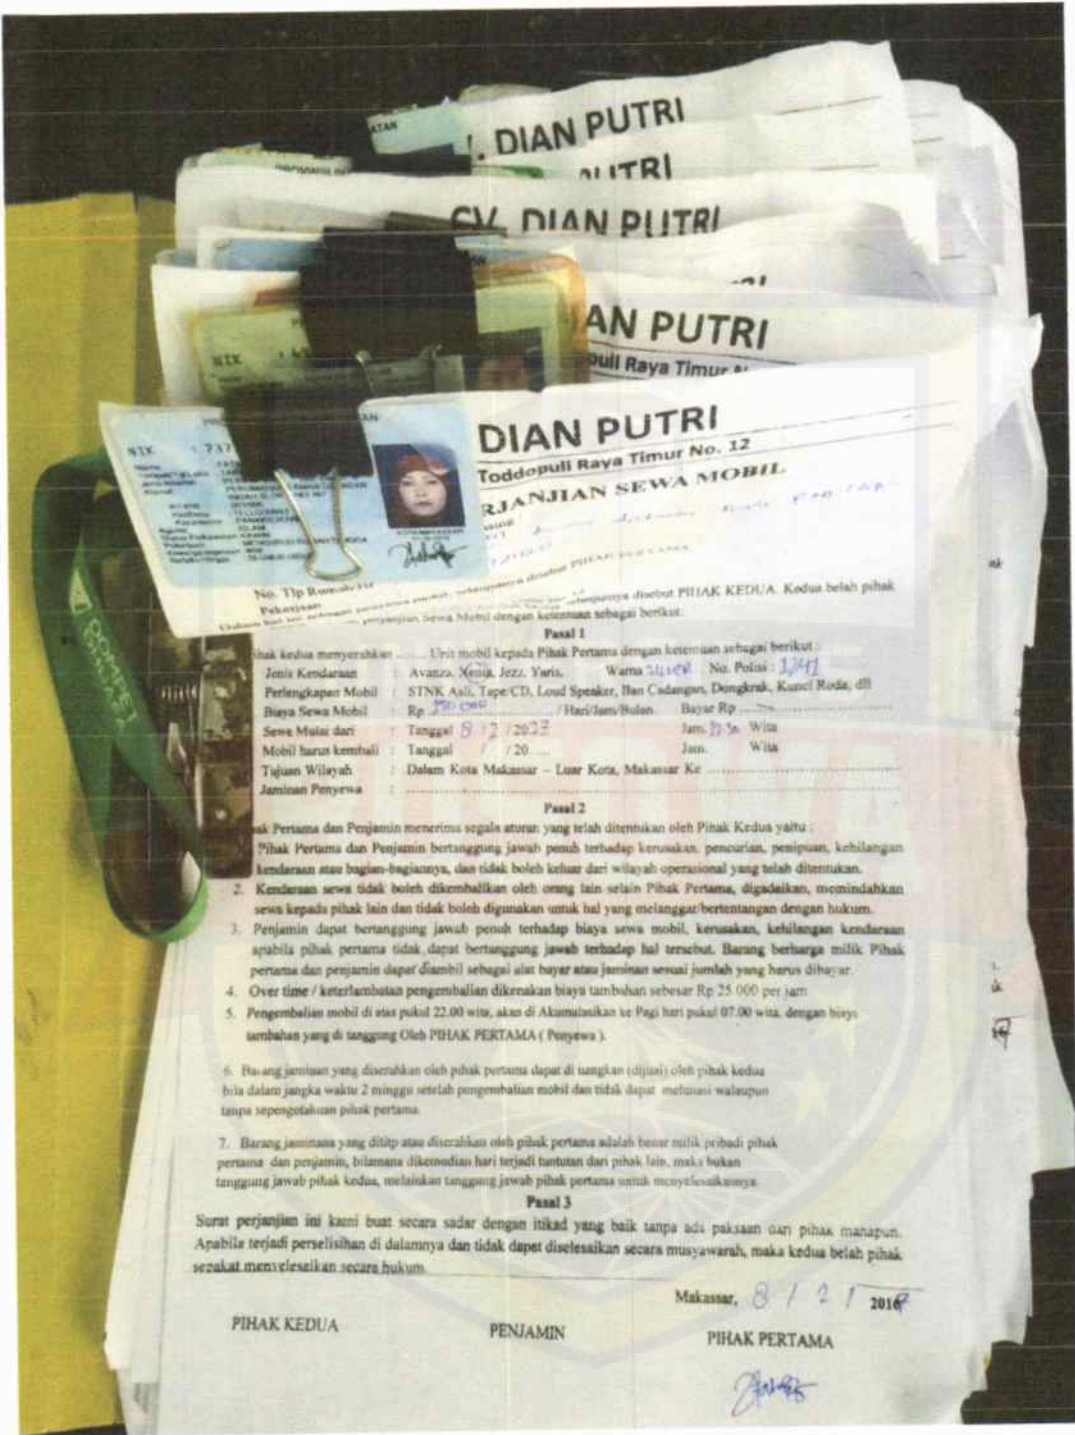 . DIAN PUTRI
PUTRI
CV. DIAN PUTRI
AN PUTRI
NIK
puli Raya Timur
DIAN PUTRI
Toddopuli Raya Timur No. 12
RJANJIAN SEWA MOBIL
NIK : 737
ISLAM
No. Tlp Rumah/
Pekerjaan
disebut PIHAK PERTAMA
disebut PIHAK KEDUA. Kedua belah pihak
perjanjian Sewa Mobil dengan ketentuan sebagai berikut.
Pasal 1
ihak kedua menyerahkan ........ Unit mobil kepada Pihak Pertama dengan ketentuan sebagai berikut :
Jenis Kendaraan : Avanza, Xenia, Jezz, Yaris, Warna SILVER No. Polisi : 1241
Perlengkapan Mobil : STNK Asli, Tape/CD, Loud Speaker, Ban Cadangan, Dongkrak, Kunci Roda, dll
Biaya Sewa Mobil : Rp / Hari/Jam/Bulan Bayar Rp
Sewa Mulai dari : Tanggal 8 / 2 / 20 Jam. Wita
Mobil harus kembali : Tanggal / / 20 .... Jam. Wita
Tujuan Wilayah : Dalam Kota Makassar – Luar Kota, Makassar Ke ................
Jaminan Penyewa : ................
Pasal 2
ak Pertama dan Penjamin menerima segala aturan yang telah ditentukan oleh Pihak Kedua yaitu :
Pihak Pertama dan Penjamin bertanggung jawab penuh terhadap kerusakan, pencurian, penipuan, kehilangan
kendaraan atau bagian-bagiannya, dan tidak boleh keluar dari wilayah operasional yang telah ditentukan.
2. Kendaraan sewa tidak boleh dikembalikan oleh orang lain selain Pihak Pertama, digadaikan, memindahkan
sewa kepada pihak lain dan tidak boleh digunakan untuk hal yang melanggar/bertentangan dengan hukum.
3. Penjamin dapat bertanggung jawab penuh terhadap biaya sewa mobil, kerusakan, kehilangan kendaraan
apabila pihak pertama tidak dapat bertanggung jawab terhadap hal tersebut. Barang berharga milik Pihak
pertama dan penjamin dapat diambil sebagai alat bayar atau jaminan sesuai jumlah yang harus dibayar.
4. Over time / keterlambatan pengembalian dikenakan biaya tambahan sebesar Rp 25.000 per jam
5. Pengembalian mobil di atas pukul 22.00 wita, akan di Akumulasikan ke Pagi hari pukul 07.00 wita, dengan biaya
tambahan yang di tanggung Oleh PIHAK PERTAMA ( Penyewa ).
6. Barang jaminan yang diserahkan oleh pihak pertama dapat di uangkan (dijual) oleh pihak kedua
bila dalam jangka waktu 2 minggu setelah pengembalian mobil dan tidak dapat melunasi walaupun
tanpa sepengetahuan pihak pertama.
7. Barang jaminana yang dititp atau diserahkan oleh pihak pertama adalah benar milik pribadi pihak
pertama dan penjamin, bilamana dikemudian hari terjadi tuntutan dari pihak lain, maka bukan
tanggung jawab pihak kedua, melainkan tanggung jawab pihak pertama untuk menyelesaikannya.
Pasal 3
Surat perjanjian ini kami buat secara sadar dengan itikad yang baik tanpa ada paksaan dari pihak manapun.
Apabila terjadi perselisihan di dalamnya dan tidak dapat diselesaikan secara musyawarah, maka kedua belah pihak
sepakat menyelesaikan secara hukum.
Makassar, 8 / 2 / 201
PIHAK KEDUA PENJAMIN PIHAK PERTAMA
DOMPET DHUAFA